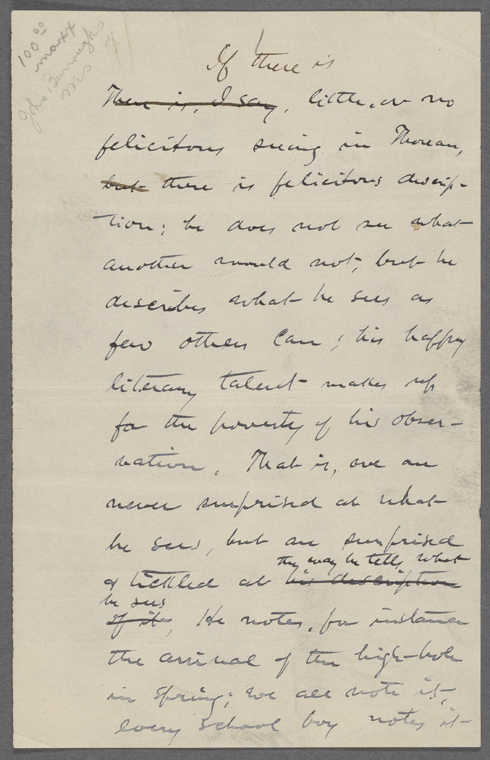 100.00
mark
John Burroughs
Ms
If there is
There is, I say, little, or no
felicitous seeing in Thoreau,
but there is felicitous descrip-
tion; he does not see what
another would not, but he
describes what he sees as
few others can; his happy
literary talent makes up
for the poverty of his obser-
vation. That is, we are
never surprised at what
he sees, but are surprised
the way he tells what
& tickled at his description
he sees
of it. He notes, for instance
the arrival of the high-hole
in spring; we all note it,
every school boy notes it